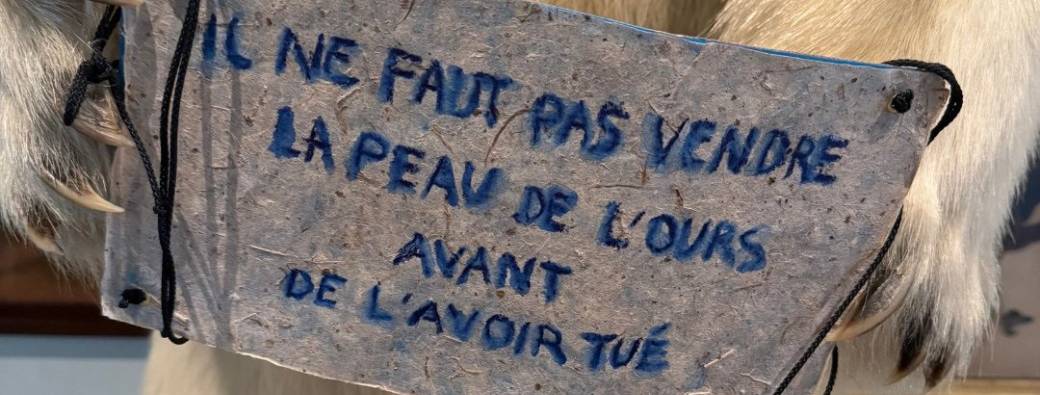 IL NE FAUT PAS VENDRE
LA PEAU DE L'OURS
AVANT
DE L'AVOIR TUÉ